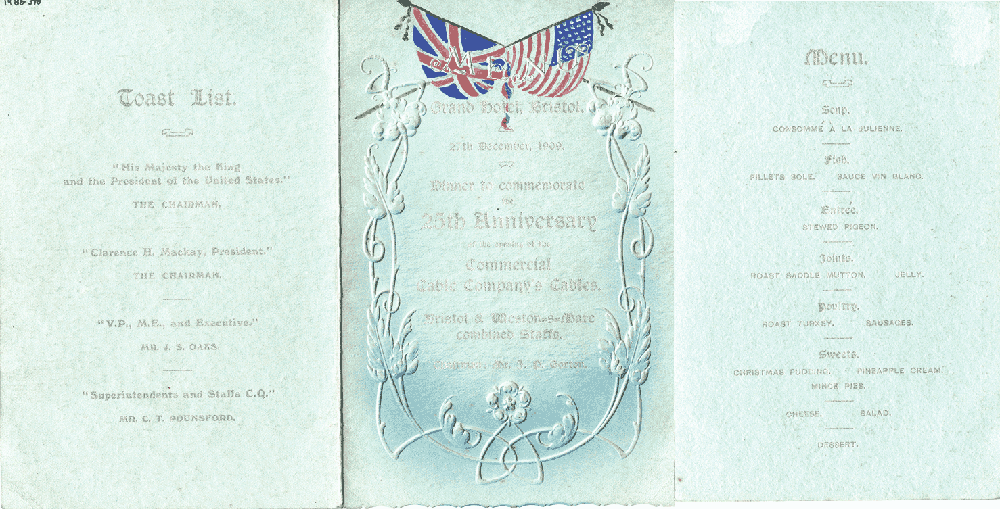 Toast List.
"His Majesty the King
and the President of the United States."
THE CHAIRMAN.
"Clarence H. Mackay, President."
THE CHAIRMAN.
"V.P., M.E., and Executive."
MR. J. S. OAKS.
"Superintendents and Staffs C.Q."
MR. C. T. POUNSFORD.
MENU
Grand Hotel, Bristol.
December, 1909.
Dinner to commemorate
the
25th Anniversary
of the opening of the
Commercial
Cable Company's Cables.
Bristol & Weston-s-Mare
combined Staffs.
Mr.
Menu.
Soup.
CONSOMMÉ À LA JULIENNE.
Fish.
FILLETS SOLE. SAUCE VIN BLANC.
Entree.
STEWED PIGEON.
Joints.
ROAST SADDLE MUTTON. JELLY.
Poultry.
ROAST TURKEY. SAUSAGES.
Sweets.
CHRISTMAS PUDDING. PINEAPPLE CREAM
MINCE PIES.
CHEESE. SALAD.
DESSERT.